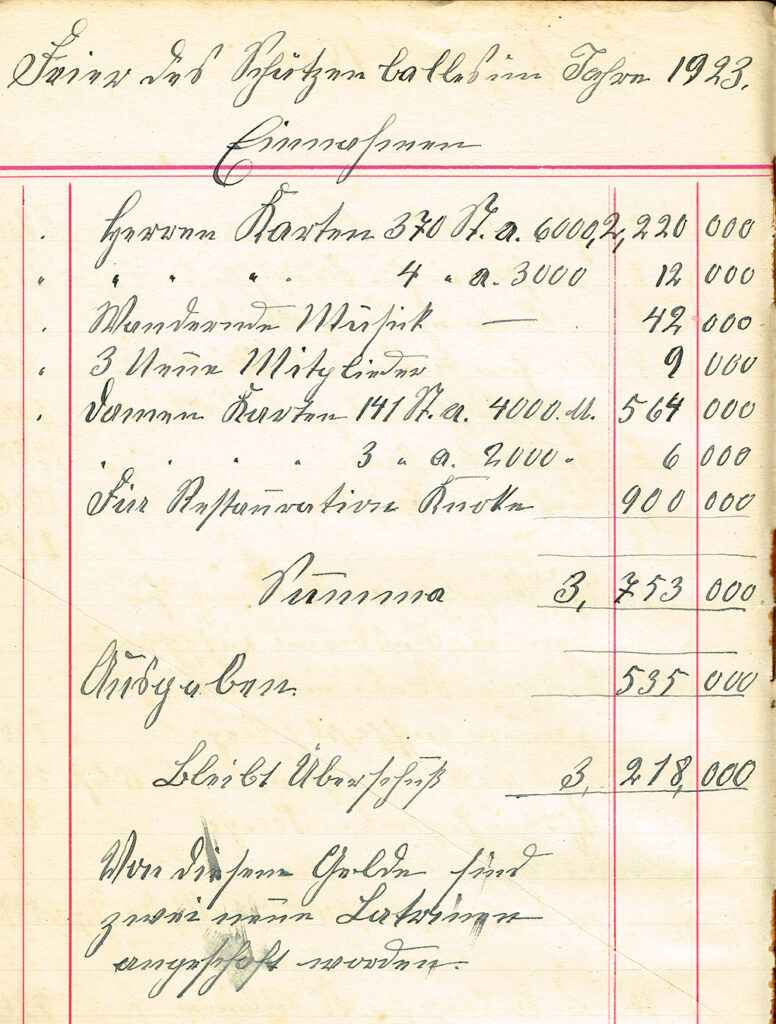 Feier des Schützenballes im Jahre 1923.
Einnahmen
. Herren Karten 370 St. a. 6000, 2,220 000
" " " " . 4 " a. 3000 12 000
. Wandernde Musick — 42 000
" 3 Neue Mitglieder 9 000
. Damen Karten 141 St. a. 4000. M. 564 000
. . " " 3 " a. 2000 " 6 000
Für Restauration Knolle 900 000
Summa 3, 753 000.
Ausgaben. 535 000
Bleibt Überschuß 3, 218, 000
Von diesem Gelde sind
zwei neue Latrinen
angeschaft worden.